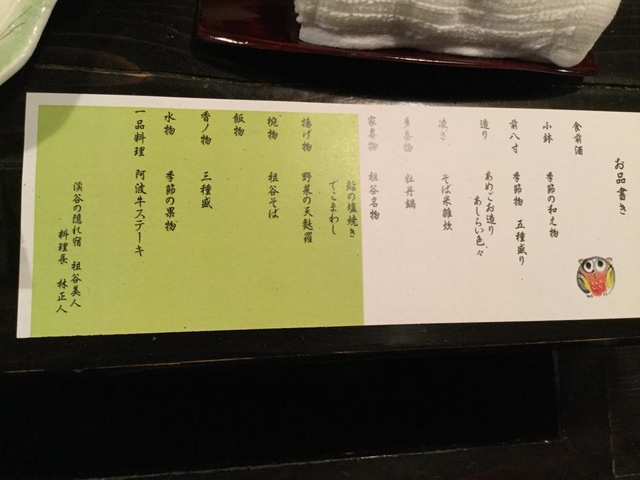 お品書き
食前酒
小鉢 季節の和え物
前八寸 季節物 五種盛り
造り あめごお造り
あしらい色々
凌ぎ そば米雑炊
魚喜物 牡丹鍋
家喜物 祖谷名物
鮎の塩焼き
でこまわし
揚げ物 野菜の天麩羅
椀物 祖谷そば
飯物
香ノ物 三種盛
水物 季節の果物
一品料理 阿波牛ステーキ
渓谷の隠れ宿 祖谷美人
料理長 林正人